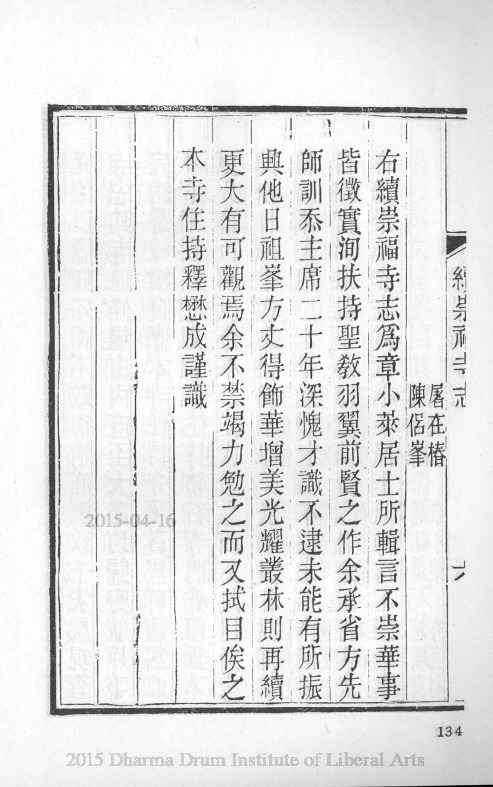 續崇福寺志
六
屠在椿
陳佸峯
右續崇福寺志爲章小萊居士所輯言不崇華事
皆徵實洵扶持聖敎羽翼前賢之作余承省方先
師訓忝主席二十年深愧才識不逮未能有所振
興他日祖峯方丈得飾華增美光耀叢林則再續
更大有可觀焉余不禁竭力勉之而又拭目俟之
本寺住持釋懋成謹識
2015-04-16
134
2015 Dharma Drum Institute of Liberal Arts